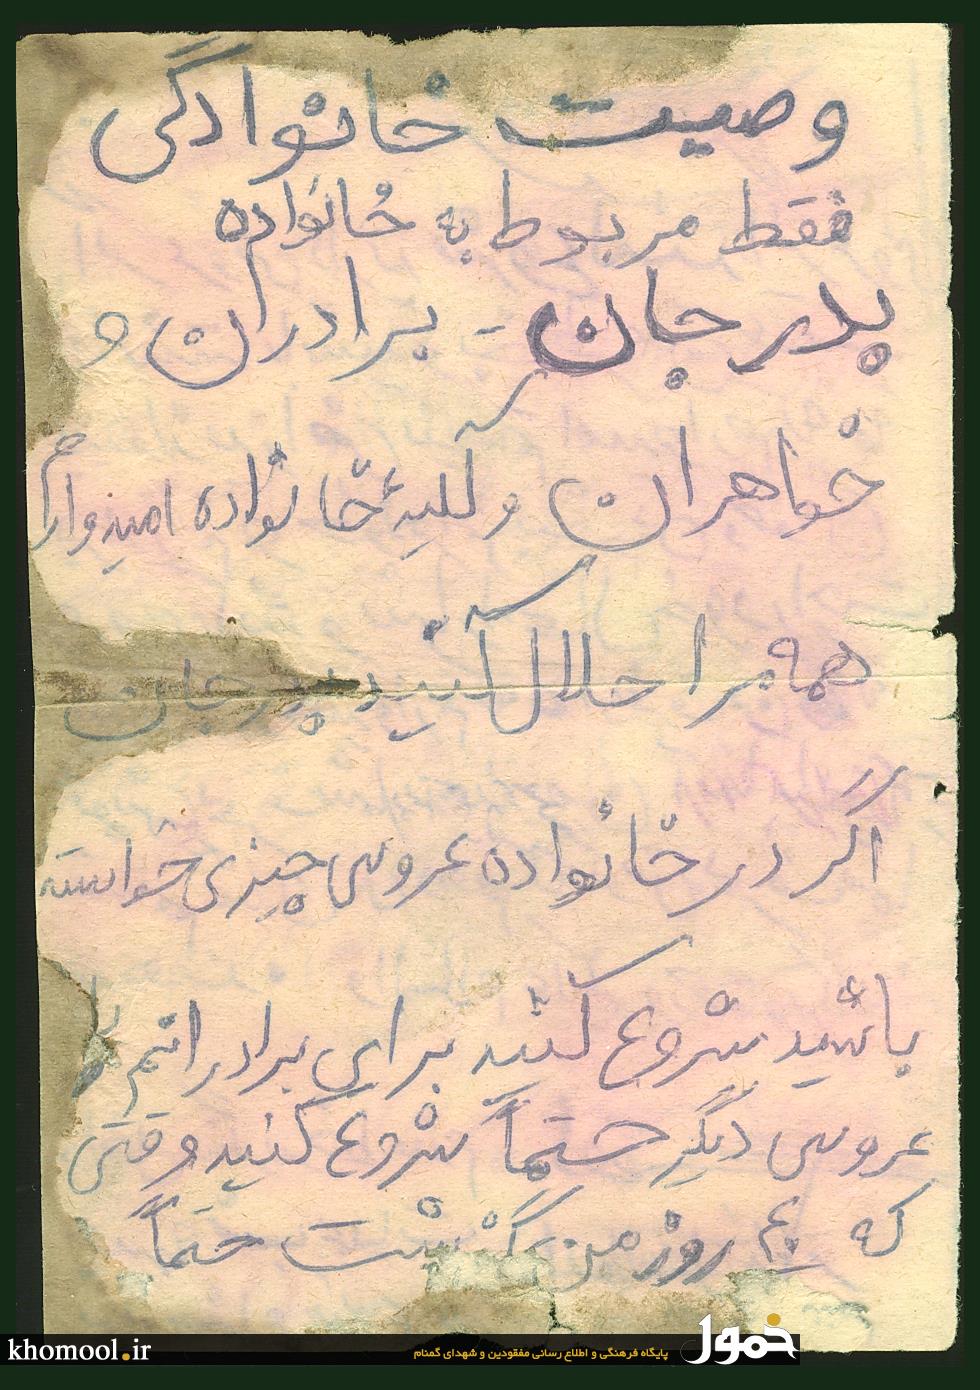 وصیت خانوادگی
فقط مربوط به خانواده
پدر جان - برادران و
خواهران و کلیه خانواده امیدوارم
همه مرا حلال کنید پدر جان
اگر در خانواده عروسی چیزی خواسته
باشید شروع کنید برای برادرانم یا
عروسی دیگر حتماً شروع کنید وقتی
که روز من گذشت حتماً
خمول
پایگاه فرهنگی و اطلاع رسانی مفقودین و شهدای گمنام
khomool.ir